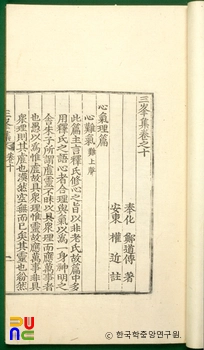 三峯集卷之十
奉化 鄭道傳 著
安東 權近 註
心氣理篇
心難氣 難上聲
此篇主言釋氏修心之旨以非老氏故篇中多
用釋氏之語心者合理與氣以爲一身神明之
舍朱子所謂虛靈不昧以具衆理而應萬事者
也愚以爲惟虛故具衆理惟靈故應萬事非具
衆理則其虛也漠然空無而已矣其靈也紛然
三峯集 卷十 一
한국학중앙연구원